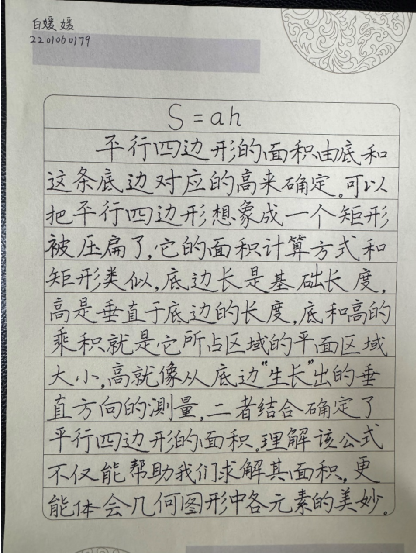 白媛媛
2201050179
S=ah
平行四边形的面积由底和
这条底边对应的高来确定。可以
把平行四边形想象成一个矩形
被压扁了,它的面积计算方式和
矩形类似,底边长是基础长度,
高是垂直于底边的长度,底和高的
乘积就是它所占区域的平面区域
大小,高就像从底边“生长”出的垂
直方向的测量,二者结合确定了
平行四边形的面积。理解该公式
不仅能帮助我们求解其面积,更
能体会几何图形中各元素的美妙。